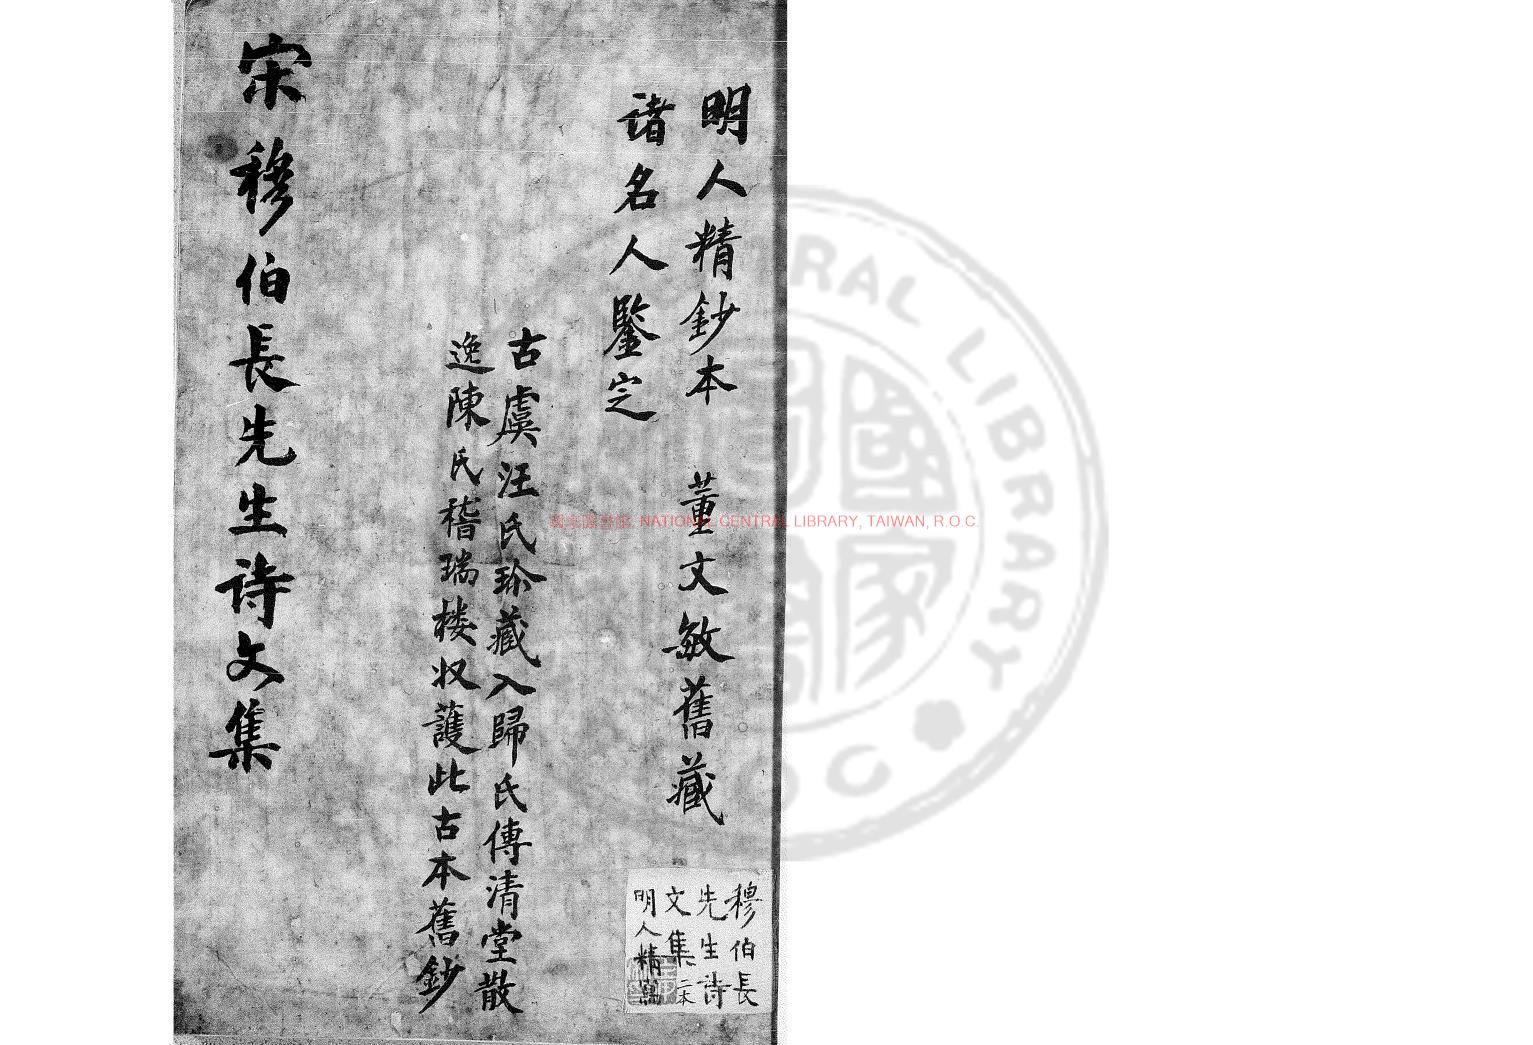 明人精鈔本 董文敏舊藏
諸名人鑒定
古虞汪氏珍藏入歸氏傳清堂散
逸陳氏稽瑞楼收護此古本舊鈔
宋穆伯長先生詩文集
穆伯長
先生詩
文集二本
明人精寫
NATIONAL CENTRAL LIBRARY, TAIWAN, R.O.C.
RAL LIBRARY
國家